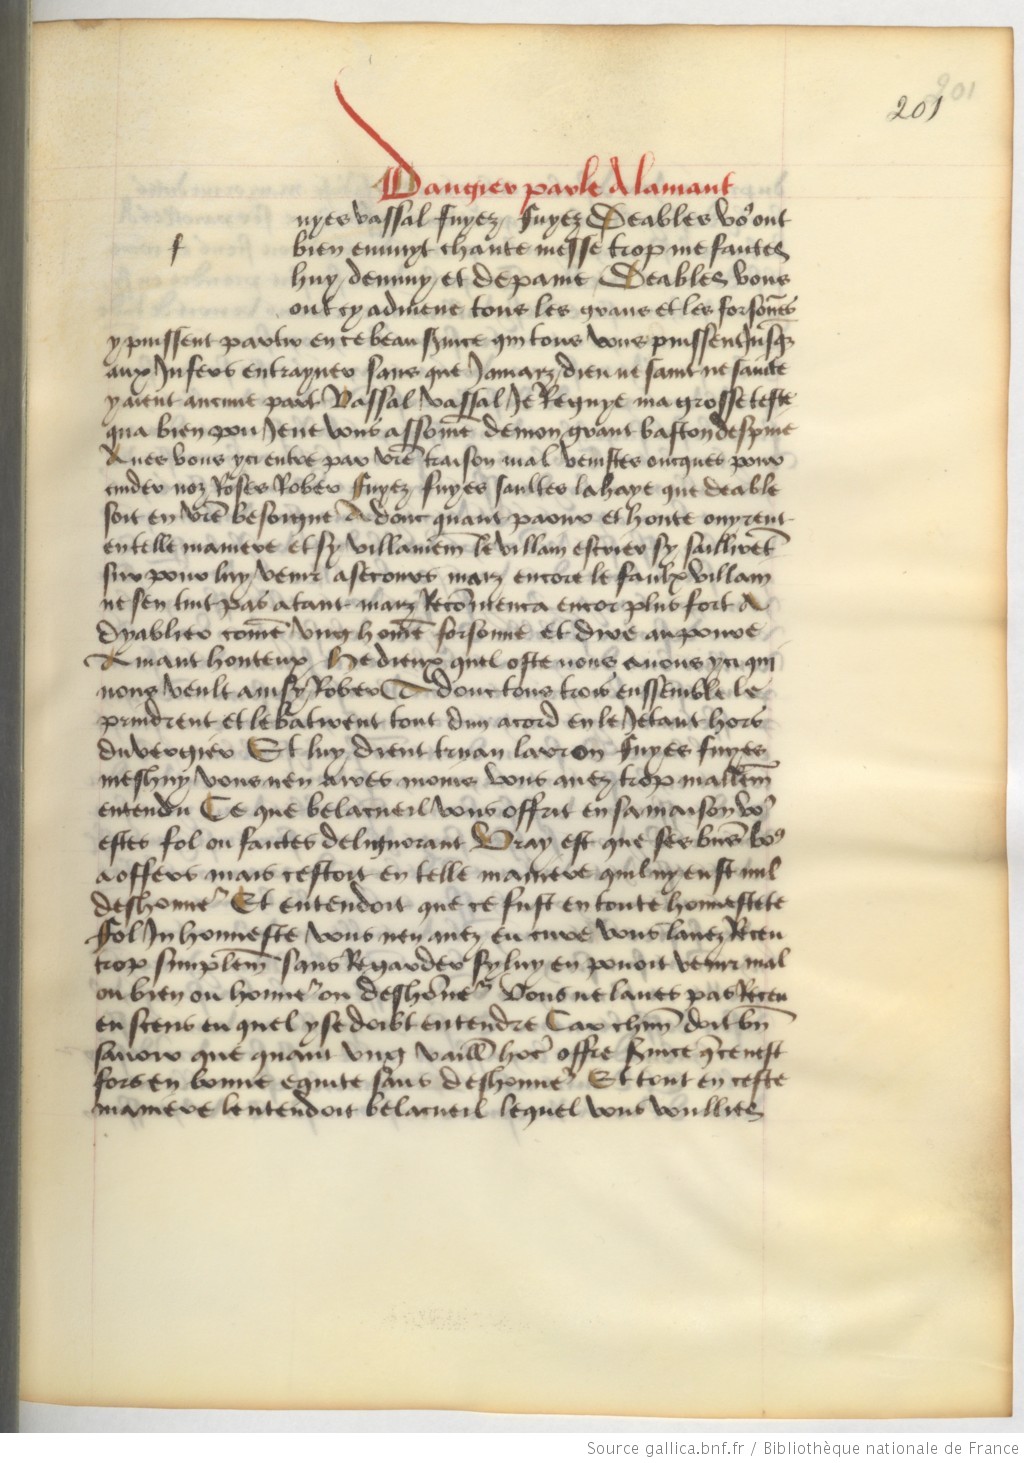 201
Dangier parle A lamant
uyes vassal fuyez fuyez Deables vo9 ont
f
bien ennuyt chante messe trop me faictes
huy dennuy et de paine Deables vous
ont cy admene tous les grans et les forsones
y puissent partir en ce beau service qui tous vous puissent Jusqz
aux Infers entrayner sans que Jamaiz dieu ne saint ne saincte
y aient aucune part Vassal vassal Je Regnye ma grosse teste
qua bien pou Je ne vous assome de mon grant baston despine
Aues vous yci entre par vre traison mal venistes oncques pour
cuider noz Roses Rober fuyez fuyes saultes la haye que deable
soit en vre besoigne Adonc quant paour et honte ouyrent
en telle maniere et sy villainem le villain escrier sy sailliret
sur pour luy venir a secours maiz encore le faulx villain
ne sen tint pas a tant maiz Recomenca encor plus fort A
dyablier come ung home forsonne et dire au poure
Amant honteux He dieux quel oste nous auons yci qui
nous veult ainsy Rober Adonc tous trois ensemble le
prindrent et le batirent tout dun acord en le Jetant hors
du vergier Et luy dirent truan larron fuyes fuyes
meshuy vous nen aures moins vous auez trop mallem
entendu Ce que belacueil vous offrit en sa maison vo9
estes fol ou faictes de lignorant Vray est que ses biens vo9
a offers mais cestoit en telle maniere quil ny eust nul
deshonne Et entendoit que ce fust en toute honnestete
Fol Inhonneste vous nen auez eu cure vous lauez Receu
trop simplem sans Regarder sy luy en pouoit venir mal
ou bien ou honne ou deshone Vous ne laues pas Receu
en scens en quel y se doibt entendre Car chun doit bn
sauoir que quant ung vaill hoe offre service q ce nest
fors en bonne equite sans deshonne Et tout en ceste
maniere lentendoit belacueil lequel vous voullies
Source gallica.bnf.fr / Bibliothèque nationale de France